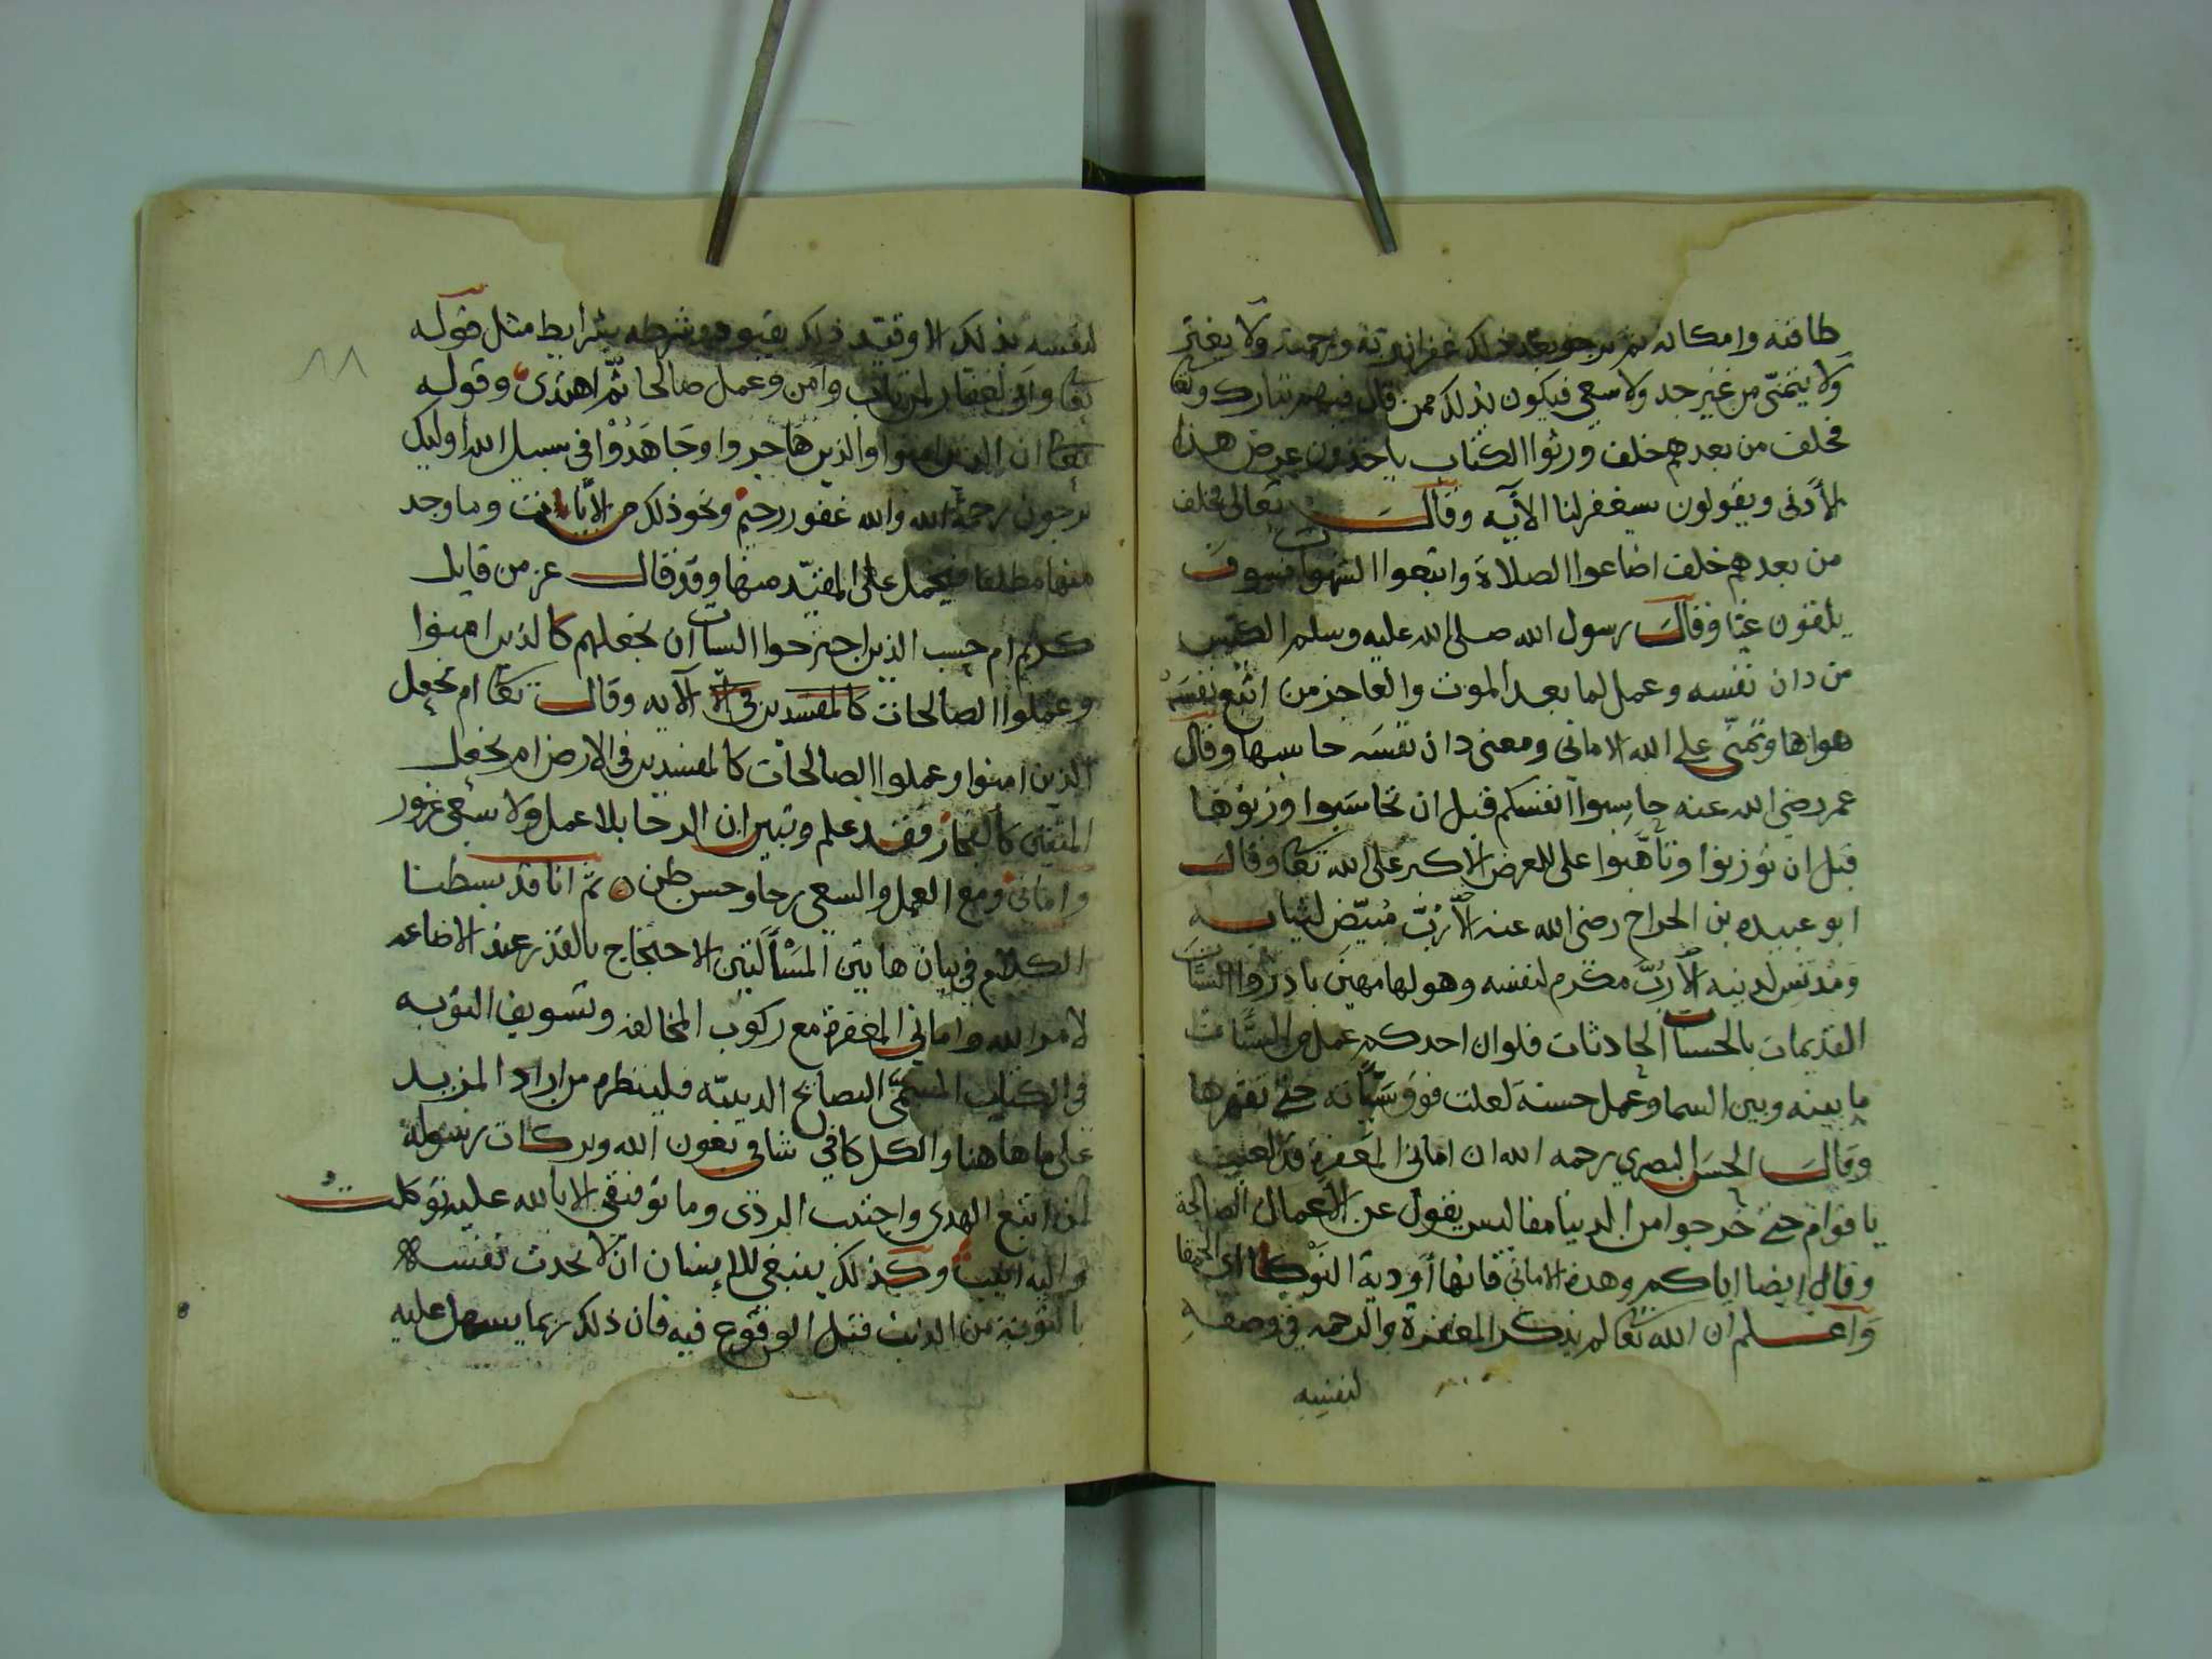 طاقته وامكانه ثم يرجو بعد ذلك غفران ربه ورحمته ولا يغتر
ولا يتمنّى من غير جد ولا سعي فيكون بذلك ممن قال فيهم تبارك وتعا
فخلف من بعدهم خلف ورثوا الكتاب ياخذون عرض هذا
الأدنى ويقولون سيغفر لنا الآيه وقال تعالى فخلف
من بعدهم خلف اضاعوا الصلاة واتبعوا الشهوات فسوف
يلقون غيا وقال رسول الله صلى الله عليه وسلم الكيس
من دان نفسه وعمل لما بعد الموت والعاجز من اتبع نفسه
هواها وتمنّى على الله الاماني ومعنى دان نفسه حاسبها وقال
عمر رضي الله عنه حاسبوا انفسكم قبل ان تحاسبوا وزنوها
قبل ان توزنوا وتأهّبوا على للعرض الاكبر على الله تعا وقال
ابو عبيده بن الجراح رضي الله عنه ألا رُبّ مُبيّض لثيابه
ومدنس لدينه ألا رُبّ مكرم لنفسه وهو لها مهين بادروا السيّات
القديمات بالحسنات الحادثات فلو ان احدكم عمل من السيّات
ما بينه وبين السما وعمل حسنة لعلت فوق سيّاته حتى تقهرها
وقال الحسن البصري رحمه الله ان اماني المغفرة قد لعبت
باقوام حتى خرجوا من الدنيا مفاليس يقول عن الأعمال الصالحة
وقال ايضا اياكم وهذه الاماني فانها أودية النّوكا اي الحمقا
واعلم ان الله تعا لم يذكر المغفرة والرحمه في وصفه
لنفسه
٨٨
لنفسه بذلك الا وقيد ذلك بقيود وشرطه بشرايط مثل قوله
تعا واني لغفار لمن تاب وآمن وعمل صالحا ثمّ اهتدى وقوله
تعا ان الذين امنوا والذين هاجروا وجاهدوا في سبيل الله أوليك
يرجون رحمة الله والله غفور رحيم ونحو ذلك من الآيات وما وجد
منها مطلقا فيحمل على المقيّد منها وقد قال عز من قايل
كريم ام حسب الذين اجترحوا السيات ان نجعلهم كالذين امنوا
وعملوا الصالحات كالمفسدين في الا الآيه وقال تعا ام نجعل
الذين امنوا وعملوا الصالحات كالمفسدين في الارض ام نجعل
المتقين كالفجار فقد علم وتبين ان الرجا بلا عمل ولا سعي غرور
واماني ومع العمل والسعي رجا وحسن ظن ثم انا قد بسطنا
الكلام في بيان هاتين المسألتين الاحتجاج بالقدر عند الاضاعه
لامر الله واماني المغفرة مع ركوب المخالفه وتسويف التوبه
في الكتاب المسمّى النصايح الدينيّه فلينظره من اراد المزيد
على ما هاهنا والكل كافي شافي بعون الله وبركات رسوله
لمن اتبع الهدى واجتنب الردى وما توفيقي الا بالله عليه توكلتُ
واليه انيب وكذلك ينبغي للانسان ان لا يحدث نفسه
بالتوبة من الذنب قبل الوقوع فيه فان ذلك ربما يسهل عليه